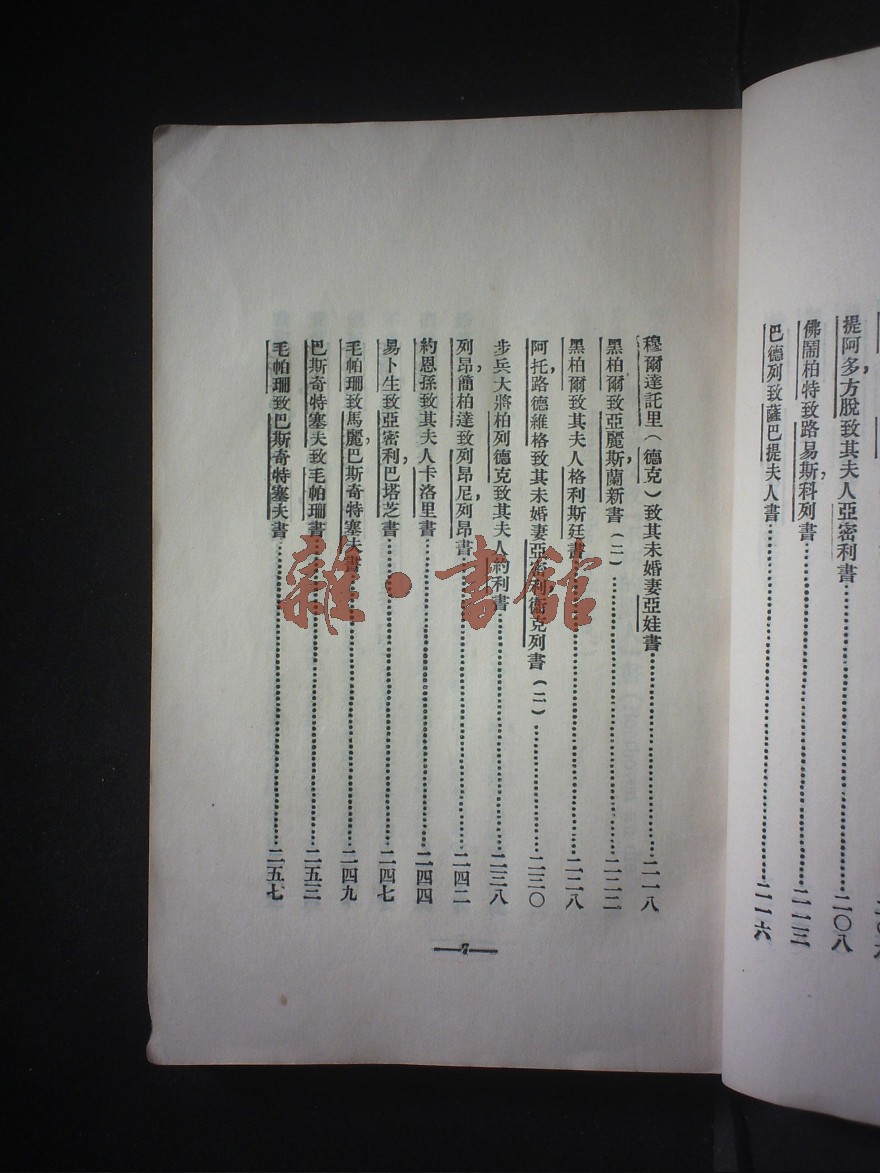 提阿多方脫致其夫人亞密利書……二〇八
佛鬧柏特致路易斯科列書……二一三
巴德列致薩巴提夫人書……二一六
穆爾達託里（德克）致其未婚妻亞娃書……二一八
黑柏爾致亞麗斯蘭新書（二）……二二二
黑柏爾致其夫人格利斯廷書……二二八
阿托路德維格致其未婚妻亞密利衞克列書（二）……二三〇
步兵大將柏列德克致其夫人約利書……二三八
列昂簡柏達致列昂尼列昂書……二四二
約恩孫致其夫人卡洛里書……二四四
易卜生致亞密利巴塔芝書……二四七
毛帕珊致馬麗巴斯奇特塞夫書……二四九
巴斯奇特塞夫致毛帕珊書……二五三
毛帕珊致巴斯奇特塞夫書……二五七
7
雜·書館